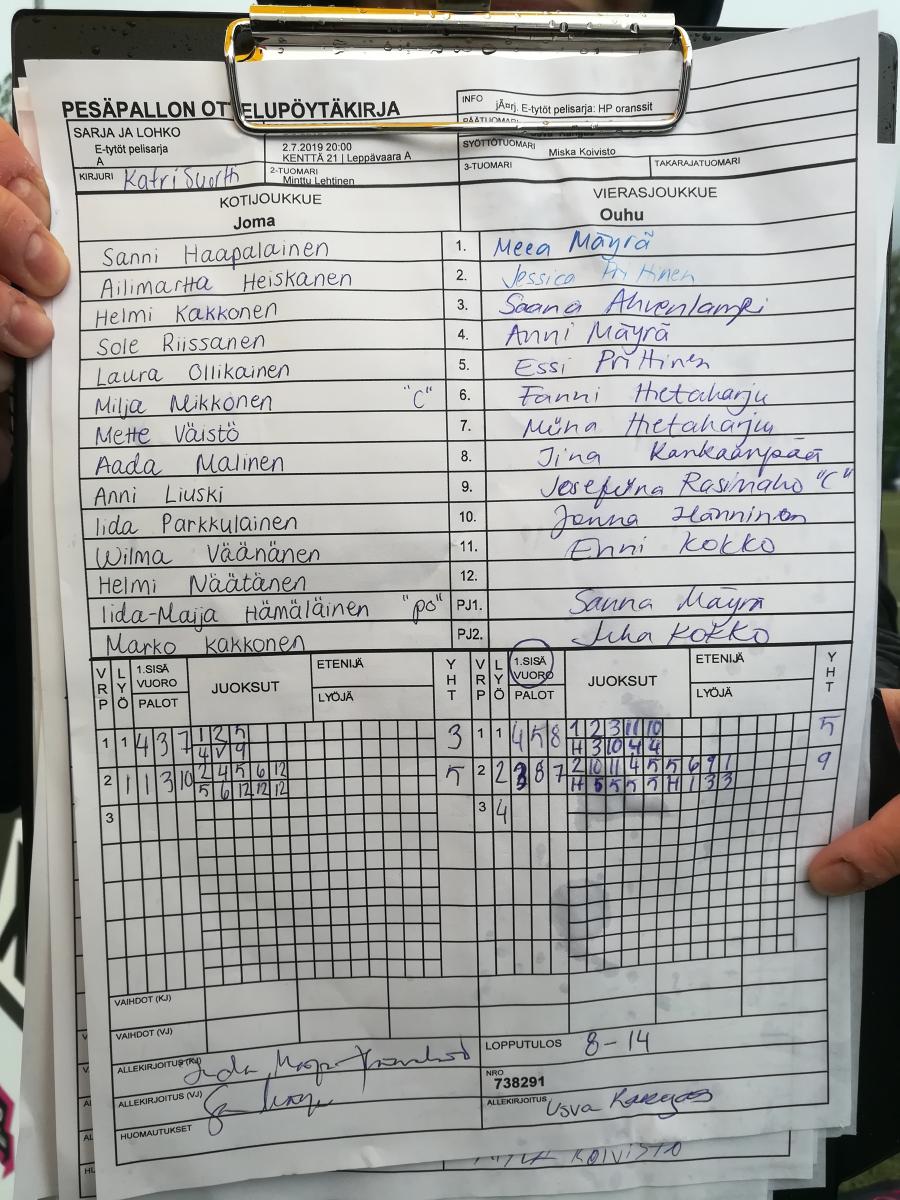 PESÄPALLON OTTELUPÖYTÄKIRJA
INFO jÃ¤rj. E-tytöt pelisarja: HP oranssit
SARJA JA LOHKO
E-tytöt pelisarja
A
2.7.2019 20:00
KENTTÄ 21 | Leppävaara A
PÄÄTUOMARI
SYÖTTÖTUOMARI Miska Koivisto
KIRJURI Katri
2-TUOMARI
Minttu Lehtinen
3-TUOMARI
TAKARAJATUOMARI
KOTIJOUKKUE VIERASJOUKKUE
Joma Ouhu
Sanni Haapalainen 1. Meea Mäyrä
Ailimartta Heiskanen 2. Jessica Prittinen
Helmi Kakkonen 3. Saana Ahvenlampi
Sole Riissanen 4. Anni Mäyrä
Laura Ollikainen 5. Essi Prittinen
Milja Mikkonen "C" 6. Fanni Hietaharju
Mette Väistö 7. Miina Hietaharju
Aada Malinen 8. Jina Kankaanpää
Anni Liuski 9. Josefiina Rasimaho "C"
Iida Parkkulainen 10. Janna Hänninen
Wilma Väänänen 11. Enni Kokko
Helmi Näätänen 12.
Iida-Maija Hämäläinen "po" PJ1. Sanna Mäyrä
Marko Kakkonen PJ2. Juha Kokko
VRP LYÖ 1.SISÄ VUORO PALOT JUOKSUT ETENIJÄ LYÖJÄ YHT VRP LYÖ 1.SISÄ VUORO PALOT JUOKSUT ETENIJÄ LYÖJÄ YHT
1 1 4 3 7 1 2 5 3 1 1 4 5 8 1 2 3 11 10 5
4 V 9 H 3 10 4 4
2 1 1 3 10 2 4 5 6 12 5 2 2 3 8 7 2 10 11 4 5 5 6 9 1 9
5 6 12 12 12 H 5 5 5 5 H 1 3 3
3 3 4
VAIHDOT (KJ)
VAIHDOT (VJ)
ALLEKIRJOITUS (KJ)
LOPPUTULOS 8-14
ALLEKIRJOITUS (VJ)
NRO
738291
HUOMAUTUKSET
ALLEKIRJOITUS Usva
KOIVISTO